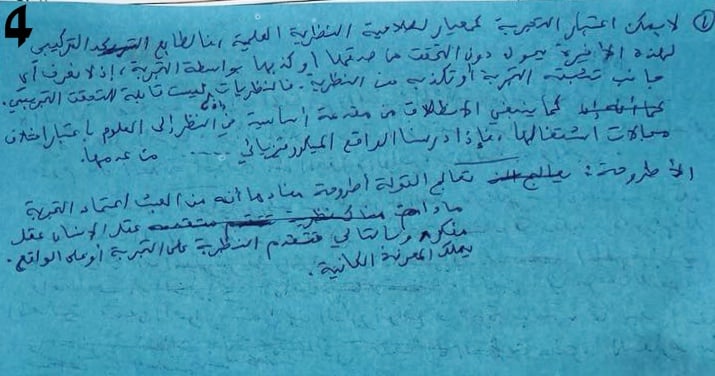 4
① لا يمكن اعتبار التجربة كمعيار لصلاحية النظرية العلمية، فالطابع التركيبي
لهذه الأخيرة يحول دون التحقق من صدقها أو كذبها بواسطة التجربة، إذ لا نعرف أي
جانب تثبته التجربة أو تكذبه من النظرية. فالنظريات ليست قابلة للتحقق التجريبي.
كما ينبغي الانطلاق من مقدمة أساسية في النظر إلى العلوم باعتبار اختلاف
مجالات اشتغالها، فإذا درسنا الواقع الميكروفيزيائي ...... من عدمها.
الأطروحة: تعالج القولة أطروحة مفادها أنه من العبث اعتماد التجربة
مادام عقل الإنسان عقل
مبتكر وبالتالي فتتقدم النظرية على التجربة أو على الواقع.
يملك المعرفة الكافية.